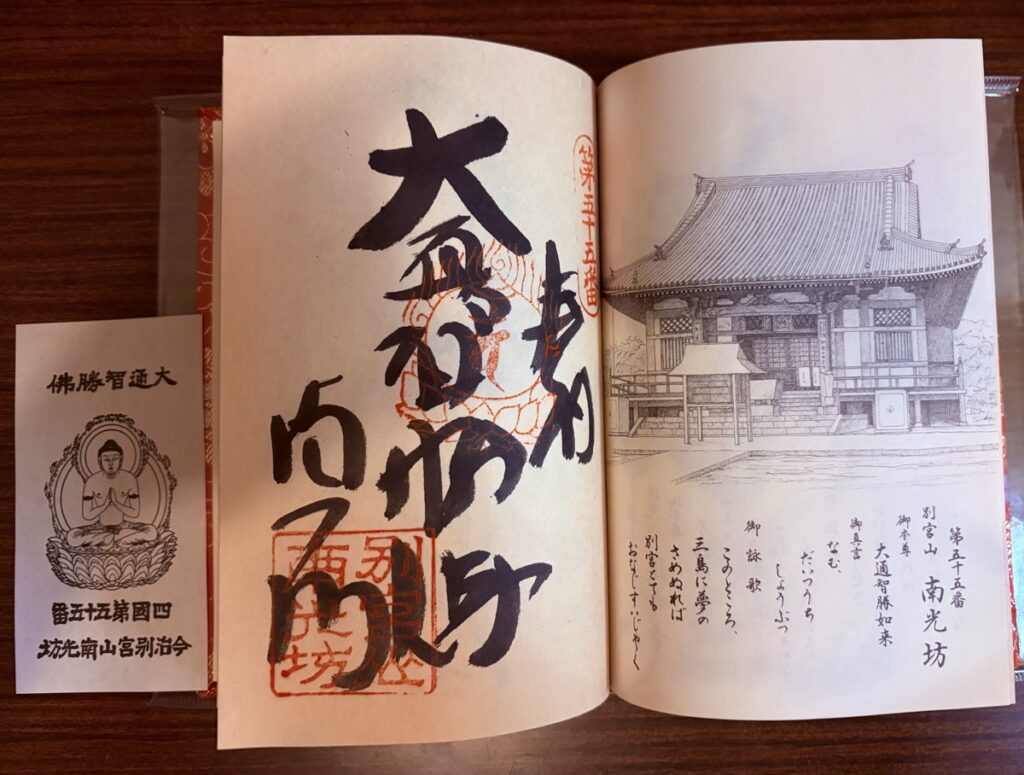 大通智勝佛
四國第五十五番
今治別宮山南光坊
第五十五番
奉納
南光坊
別宮山
南光坊
第五十五番
別宮山 南光坊
御本尊
大通智勝如来
御真言
なむ、
だいつうち
しょうぶつ
御詠歌
このところ、
三島に夢の
さめぬれば
別宮とても
おなじすいじゃく